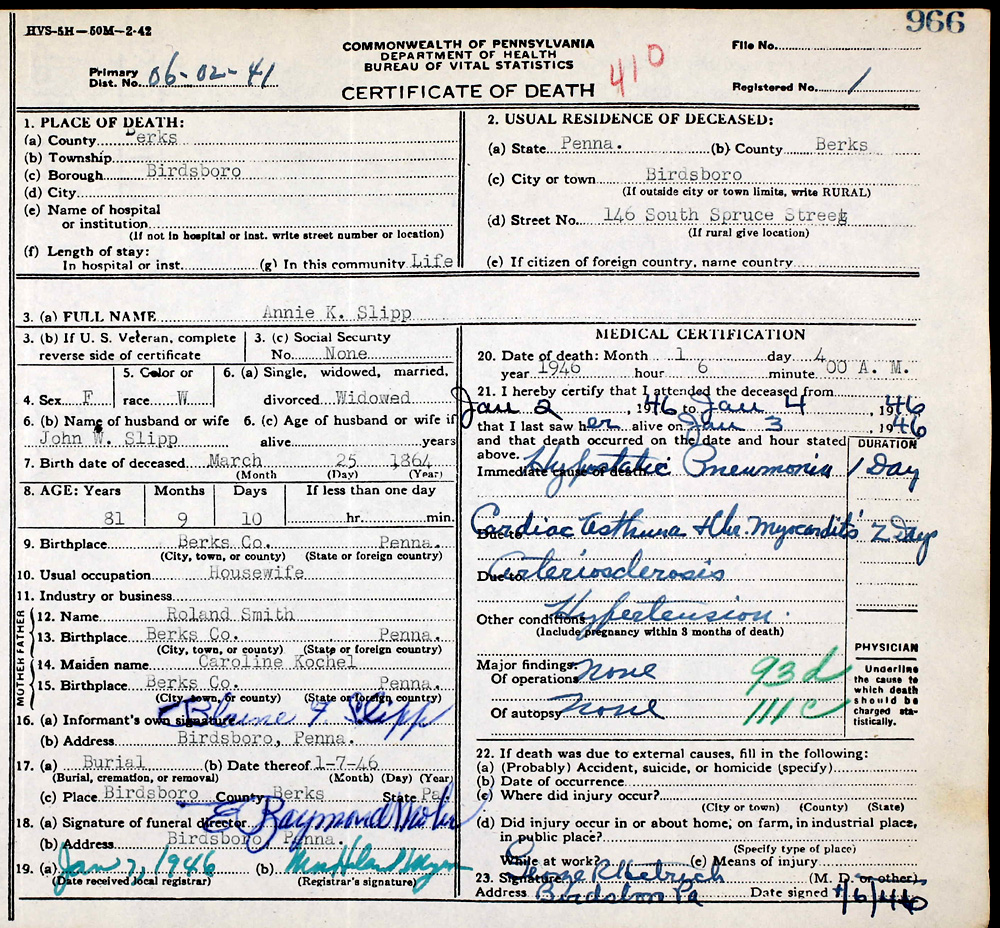 HVS-5H—50M—2-42
966
COMMONWEALTH OF PENNSYLVANIA
DEPARTMENT OF HEALTH
BUREAU OF VITAL STATISTICS
CERTIFICATE OF DEATH
410
Primary Dist. No. 06-02-41
File No.
Registered No. 1
1. PLACE OF DEATH:
(a) County Berks
(b) Township
(c) Borough Birdsboro
(d) City
(e) Name of hospital
or institution
(If not in hospital or inst. write street number or location)
(f) Length of stay:
In hospital or inst. (g) In this community Life
2. USUAL RESIDENCE OF DECEASED:
(a) State Penna. (b) County Berks
(c) City or town Birdsboro
(If outside city or town limits, write RURAL)
(d) Street No. 146 South Spruce Street
(If rural give location)
(e) If citizen of foreign country, name country
3. (a) FULL NAME Annie K. Slipp
3. (b) If U. S. Veteran, complete
reverse side of certificate
3. (c) Social Security
No. None
4. Sex F
5. Color or
race W
6. (a) Single, widowed, married,
divorced Widowed
6. (b) Name of husband or wife
John W. Slipp
6. (c) Age of husband or wife if
alive years
7. Birth date of deceased March 25 1864
(Month (Day) (Year)
8. AGE: Years Months Days If less than one day
81 9 10 hr. min.
9. Birthplace Berks Co. Penna.
(City, town, or county) (State or foreign country)
10. Usual occupation Housewife
11. Industry or business
FATHER
12. Name Roland Smith
13. Birthplace Berks Co. Penna.
(City, town, or county) (State or foreign country)
MOTHER
14. Maiden name Caroline Kochel
15. Birthplace Berks Co. Penna.
(City, town, or county) (State or foreign country)
16. (a) Informant's own signature Blaine F. Slipp
(b) Address Birdsboro, Penna.
17. (a) Burial (b) Date thereof 1-7-46
(Burial, cremation, or removal) (Month) (Day) (Year)
(c) Place Birdsboro County Berks State Pa.
18. (a) Signature of funeral director E Raymond
(b) Address Birdsboro Penna.
19. (a) Jan 7, 1946 (b)
(Date received local registrar) (Registrar's signature)
MEDICAL CERTIFICATION
20. Date of death: Month 1 day 4
year 1946 hour 6 minute 00 A. M.
21. I hereby certify that I attended the deceased from
Jan 2, 1946 to Jan 4, 1946
that I last saw her alive on Jan 3, 1946
and that death occurred on the date and hour stated
above.
DURATION
Immediate cause of death Hypostatic Pneumonia 1 Day
Due to Cardiac Asthma & Chr. Myocarditis 2 Days
Due to Arteriosclerosis
Other conditions Hypertension.
(Include pregnancy within 3 months of death)
Major findings:
Of operations None 93d
Of autopsy None 111c
PHYSICIAN
Underline
the cause to
which death
should be
charged sta-
tistically.
22. If death was due to external causes, fill in the following:
(a) (Probably) Accident, suicide, or homicide (specify)
(b) Date of occurrence
(c) Where did injury occur?
(City or town) (County) (State)
(d) Did injury occur in or about home, on farm, in industrial place,
in public place?
(Specify type of place)
While at work? (e) Means of injury
23. Signature George R Hetrich (M. D. or other)
Address Birdsboro Pa Date signed 1/6/46